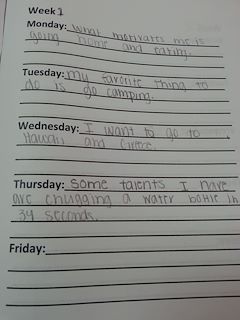 Week 1
Monday: What motivates me is
going home and eating.
Tuesday: My favorite thing to
do is go camping.
Wednesday: I want to go to
Hawaii and Greece.
Thursday: Some talents I have
are chugging a water bottle in
34 seconds.
Friday: